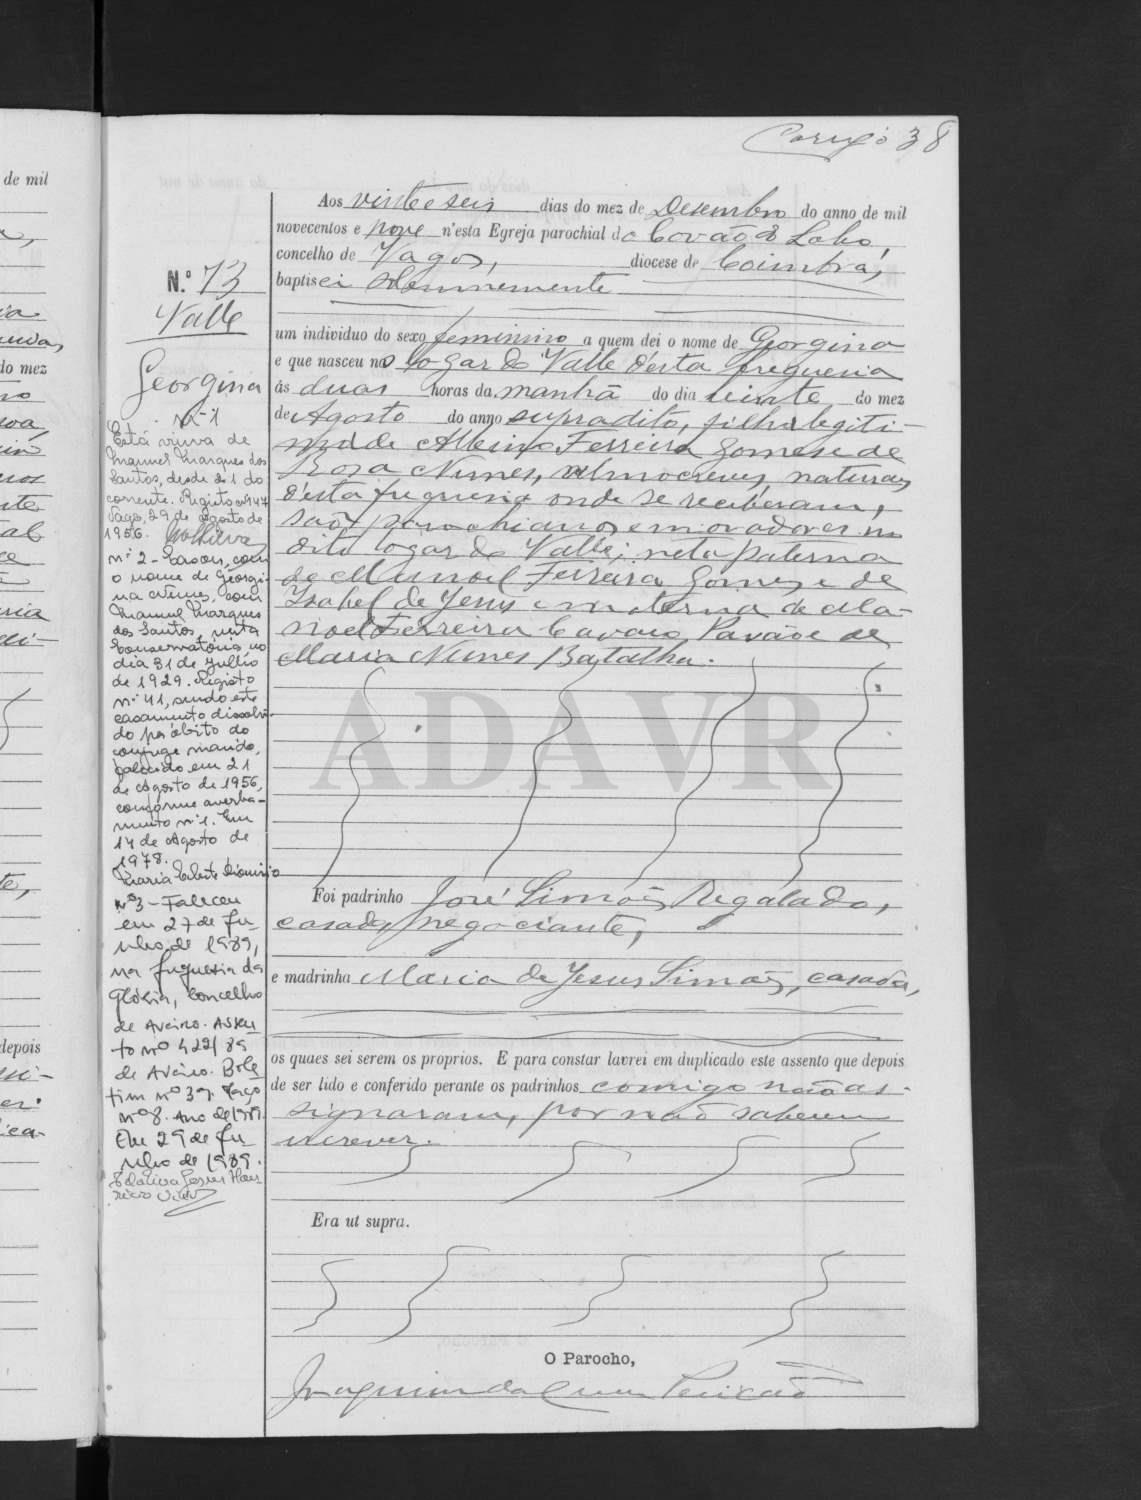 38
Aos vinte e seis dias do mez de Desembro do anno de mil
novecentos e nove n'esta Egreja parochial do Covão do Lobo,
concelho de Vagos, diocese de Coimbra,
baptisei solemnemente
um individuo do sexo feminino a quem dei o nome de Georgina
e que nasceu no logar do Valle d'esta freguesia
ás duas horas da manhã do dia vinte do mez
de Agosto do anno supradito, filha legiti-
ma de Albino Ferreira Gomes e de
Rosa Nunes, almocreves, naturaes
d'esta freguesia onde se receberam,
são parochianos e moradores no
dito logar do Valle; neta paterna
de Manoel Ferreira Gomes, e de
Izabel de Jesus e materna de Ma-
noel Ferreira Pavão e de
Maria Nunes Batalha.
Foi padrinho José Simões Regalado,
casado, negociante,
e madrinha Maria de Jesus Simões, casada,
os quaes sei serem os proprios. E para constar lavrei em duplicado este assento que depois
de ser lido e conferido perante os padrinhos comigo não as-
signaram, por não saberem
escrever.
Era ut supra.
O Parocho,
Joaquim da Cruz
N.º 73
Valle
Georgina
Nº 1
Está viuva de
Manuel Marques dos
Santos, desde 21 do
corrente. Registo nº 447
Vagos, 29 de Agosto de
1956.
nº 2 - Casou, com
o nome de Georgi-
na Nunes, com
Manuel Marques
dos Santos, nesta
Conservatória, no
dia 31 de Julho
de 1929. Registo
nº 41, sendo este
casamento dissolvi-
do por óbito do
conjuge marido,
falecido em 21
de Agosto de 1956,
conforme averba-
mento nº 1. Em
14 de Agosto de
1978.
Maria Celeste Dionisio
nº 3 - Faleceu
em 27 de Ju-
nho de 1989,
na freguesia da
Glória, Concelho
de Aveiro. Assen-
to nº 422/89
de Aveiro. Bole-
tim nº 39. Maço
nº 8. Ano de 1989.
Em 29 de Ju-
nho de 1989.
ADAVR
de mil
do mez
depois